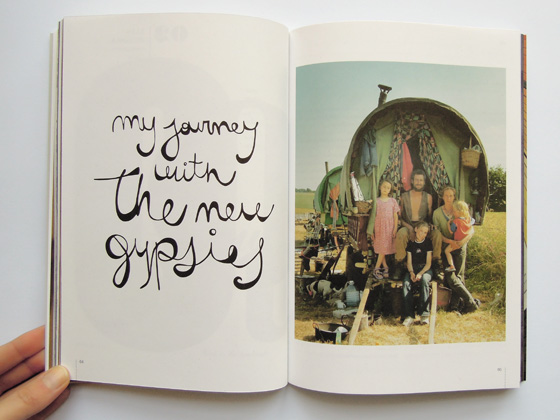 my journey
with
the new
gypsies